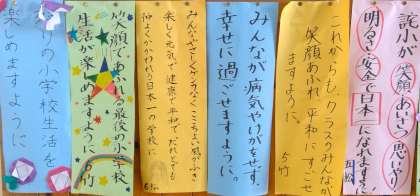 笑顔・あいさつ・思いやり
明るさ・安全で日本一になりますように
これからも、クラスのみんなが
笑顔あふれ、平和にすごせ
ますように。
5竹
みんなが病気やけがをせず、
幸せに過ごせますように。
みんなやさしくケンカなくここちよい風がふき
楽しく元気で健康で平和でだれとでも
仲よくかかわれる日本一の学校に
笑顔であふれる最後の小学校
生活が楽しめますように
りの小学校生活を
楽しめますように